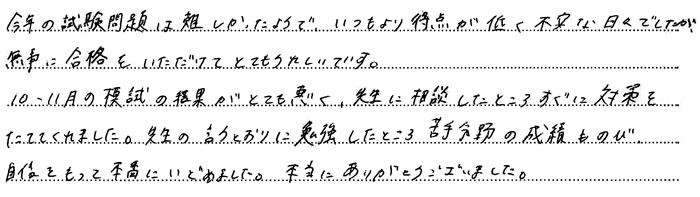 今年の試験問題は難しかったようで、いつもより得点が低く不安な日々でしたが
無事に合格をいただけてとてもうれしいです。
10-11月の模試の結果がとても悪く、先生に相談したところすぐに対策を
たててくれました。先生の言うとおりに勉強したところ苦手分野の成績ものび、
自信をもって本番にいどめました。本当にありがとうございました。